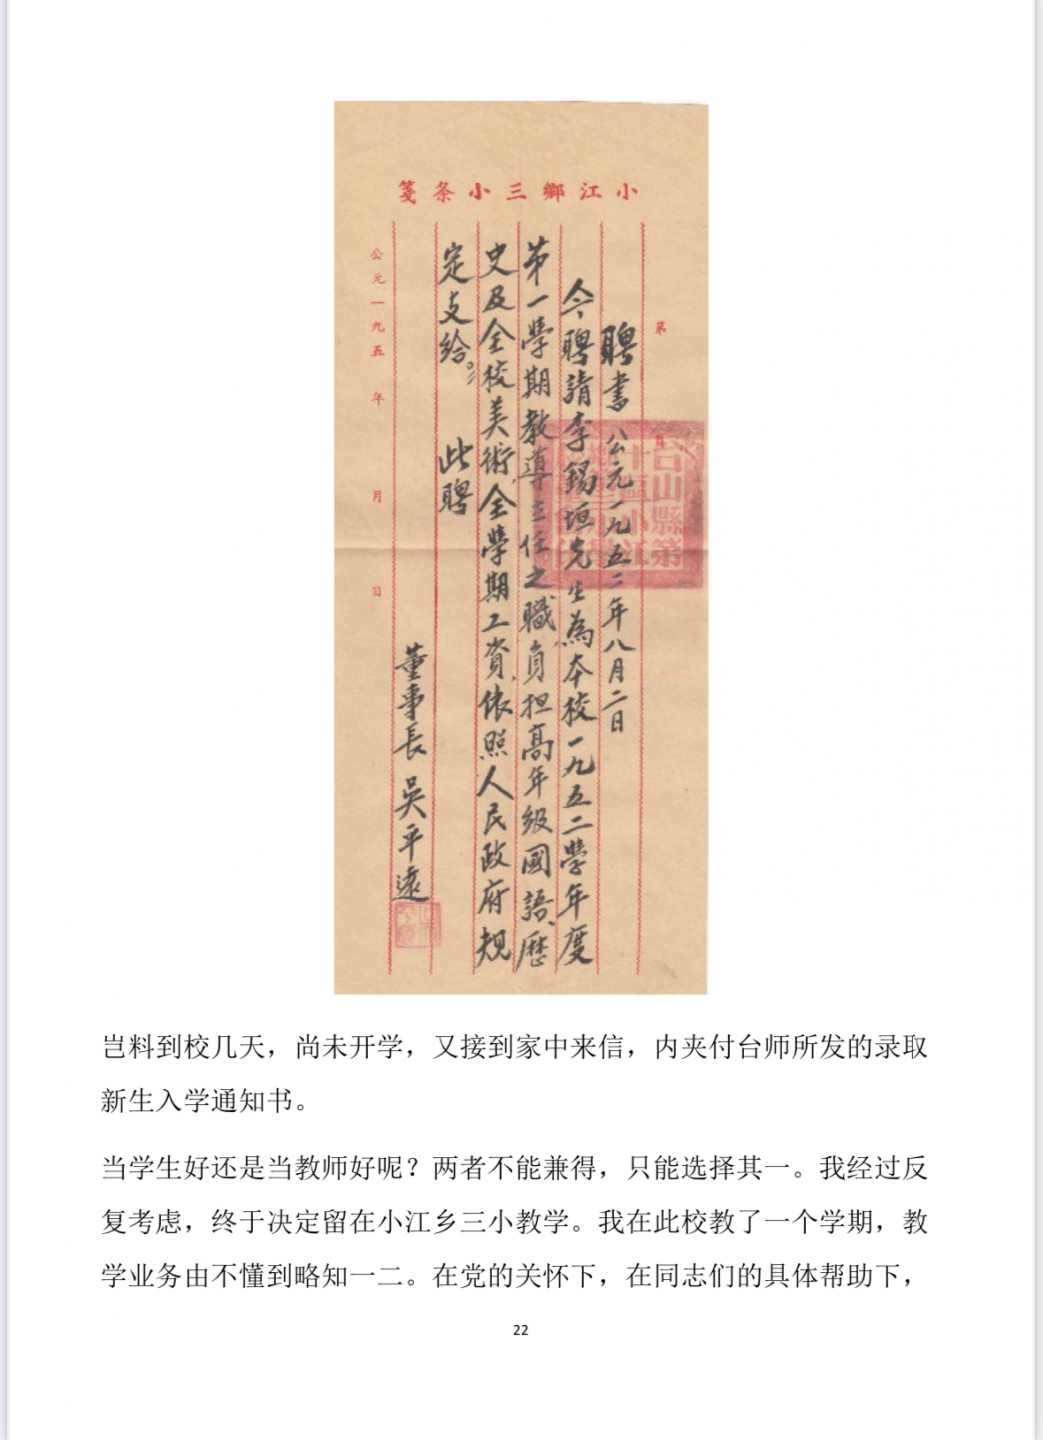 小江鄉三小条箋
第
聘書 公元一九五二年八月二日
今聘請李錫垣先生為本校一九五二學年度
第一學期教導主任之職，負担高年級國語、歷
史及全校美術，全學期工資，依照人民政府規
定支給。 此聘
董事長 吴平遠
公元一九五 年 月 日
台山縣第
十區小江
岂料到校几天，尚未开学，又接到家中来信，内夹付台师所发的录取
新生入学通知书。
当学生好还是当教师好呢？两者不能兼得，只能选择其一。我经过反
复考虑，终于决定留在小江乡三小教学。我在此校教了一个学期，教
学业务由不懂到略知一二。在党的关怀下，在同志们的具体帮助下，
22